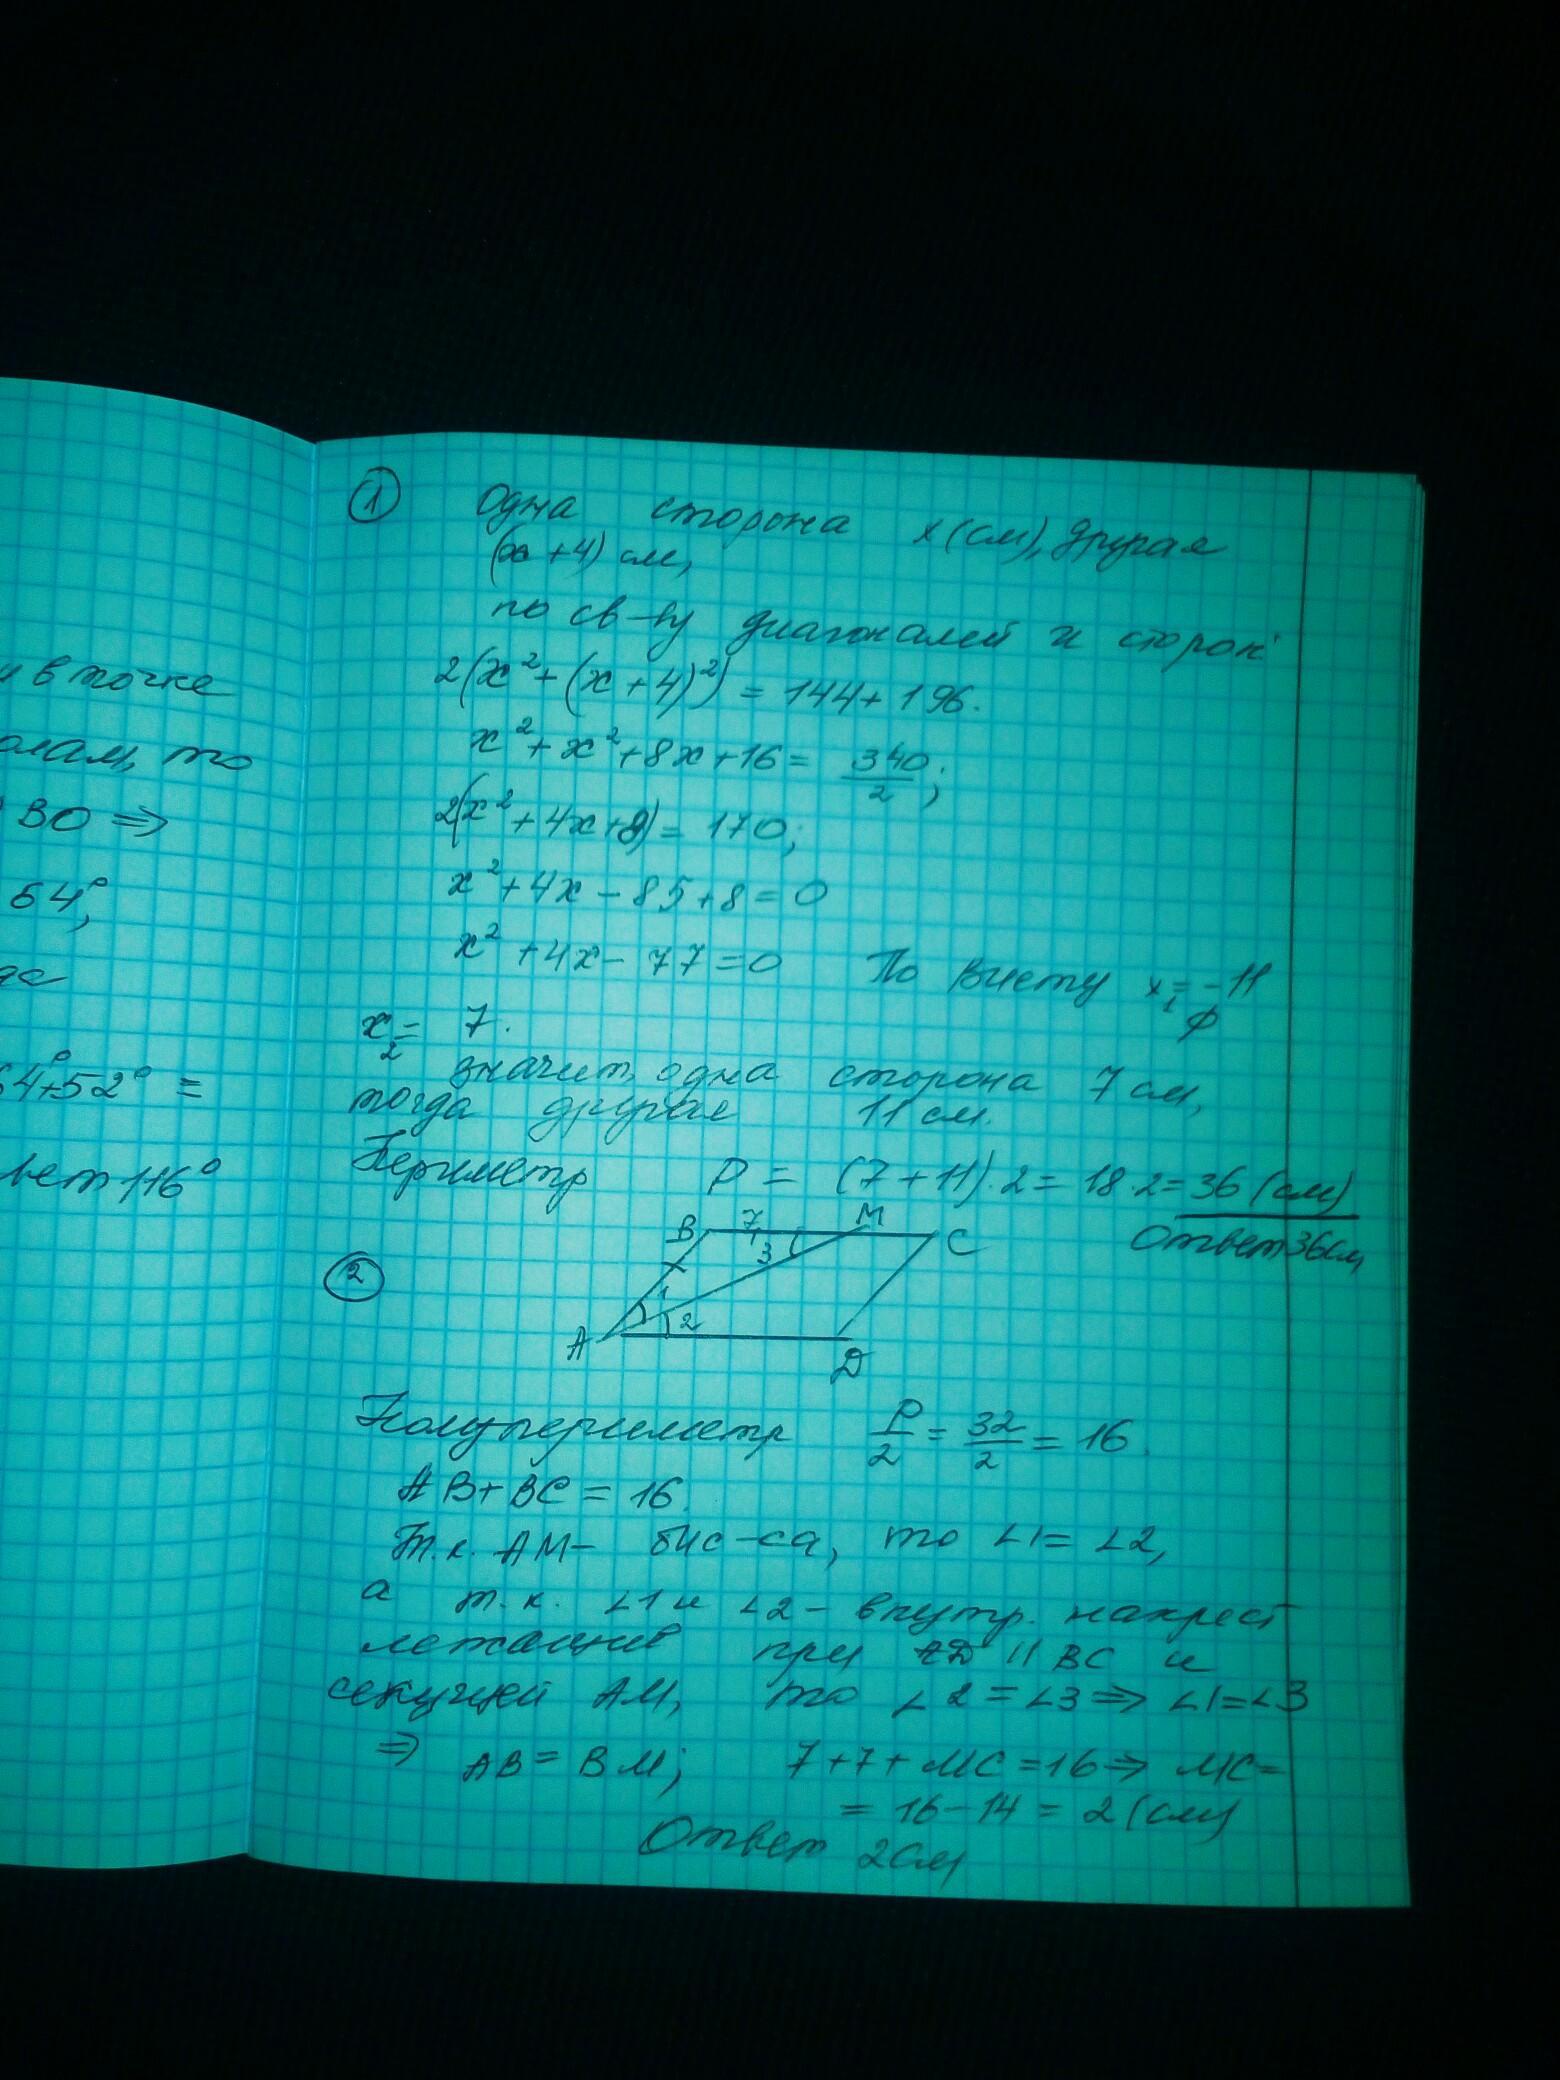 и в точке
олам, то
ВО ⇒
64°,
64°+52° =
вет 116°
① Одна сторона х(см), другая
(х+4) см,
по св-ву диагоналей и сторон:
2(x²+(x+4)²) = 144+196.
x²+x²+8x+16 = 340/2;
2(x²+4x+8) = 170;
x²+4x-85+8=0
x²+4x-77=0 По Виету x₁=-11
∅
x₂= 7.
значит, одна сторона 7 см,
тогда другая 11 см.
Периметр P = (7+11)·2=18·2=36 (см)
Ответ 36см,
②
B 7 M C
3
1
2
A D
Полупериметр P/2 = 32/2 = 16.
AB+BC = 16.
Т.к. АМ- бис-са, то ∠1= ∠2,
а т.к. ∠1 и ∠2 - внутр. накрест
лежащие при AD || BC и
секущей АМ, то ∠2=∠3 ⇒ ∠1=∠3
⇒ AB = BM; 7+7+MC=16 ⇒ MC=
= 16-14 = 2 (см)
Ответ 2см